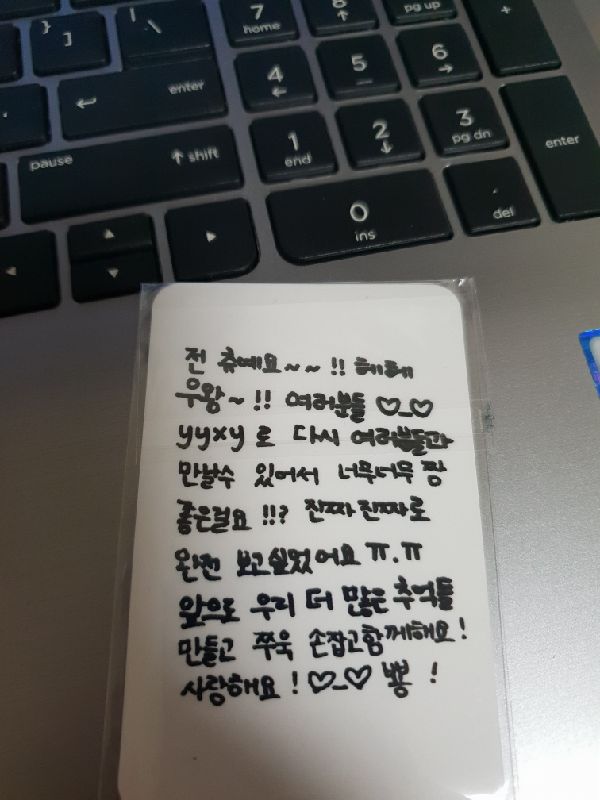 }
]
|
\
7
home
8
↑
pg up
+
←
enter
4
←
5
6
→
pause
↑ shift
1
end
2
↓
3
pg dn
enter
0
ins
.
del
전 츄예요~~!! 헤헤
우왕~!! 여러분들 ♡_♡
yyxy로 다시 여러분들과
만날수 있어서 너무너무 짱
좋은걸요!!? 진짜진짜로
완전 보고싶었어요 ㅠ.ㅠ
앞으로 우리 더 많은 추억들
만들고 쭈욱 손잡고함께해요!
사랑해요! ♡_♡ 뿅!